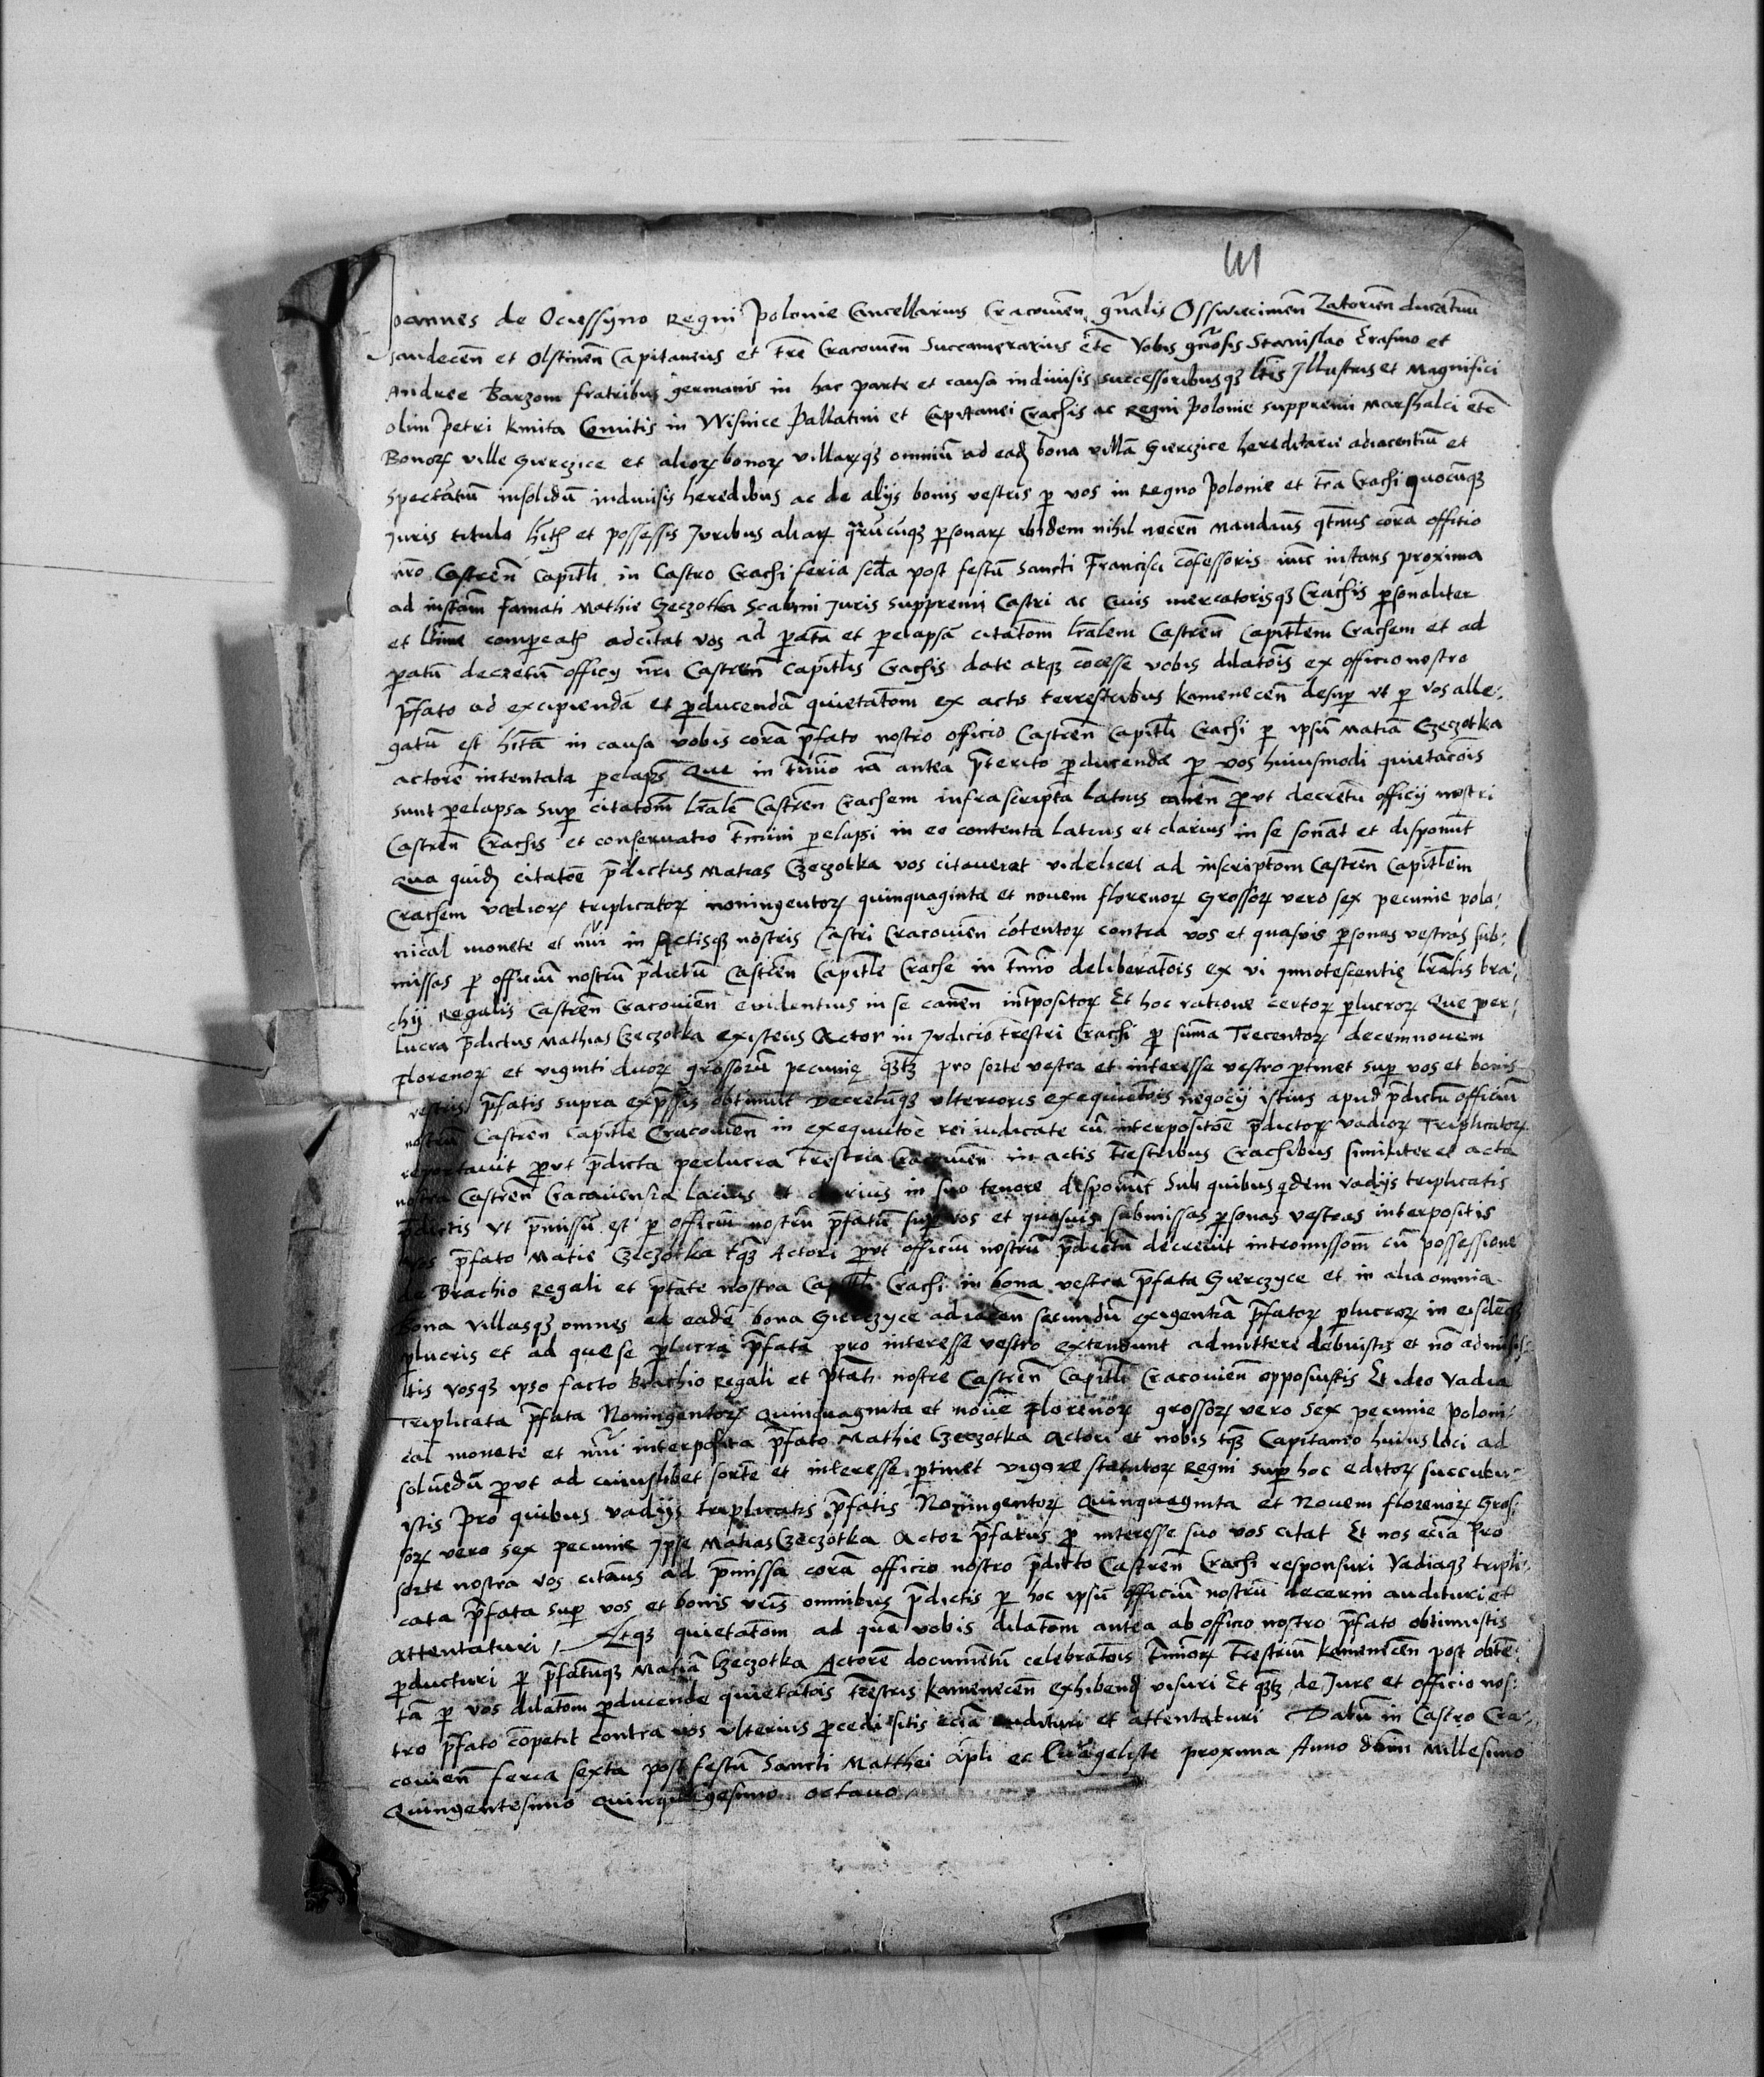 141
Joannes de Ociessyno Regni Polonie Cancellarius Cracovien̄ gn̄alis Osswiecimen̄ Zatorien̄ ducatuū
Sandecen̄ et Olstinen̄ Capitaneus et tr̄e Cracovien̄ Succamerarius etc̄ Vobis gn̄osis Stanislao Erasmo et
Andree Barzom fratribus germanis in hac parte et causa indivisis successoribusqʒ Illustris et Magnifici
olim Petri Kmita Comitis in Wisnice Pallatini et Capitanei Crachis ac Regni Polonie suppremi Marshalci etc̄
Bonorꝝ ville Gierczice et aliorꝝ bonorꝝ villarꝝqʒ omniū ad ead bona villā Gierczice hereditarie adiacentiū et
Spectātiū insolidū indivisis heredibus ac de alijs bonis vestris p̄ vos in Regno Polonie et tr̄a Crachi quocūqʒ
Juris titulo et possessis Juribus aliarꝝ personarꝝ ibidem nihil necen̄ Mandaūs coră officio
nr̄o Castren̄ Capitl̄i in Castro Crachi feria scd̄a post festū Sancti Francisci cōfessoris nūc instans proxima
ad instām Famati Mathie Czeczotka Scabini Juris Suppremi Castri ac Civis mercatorisqʒ Crachis p̄sonaliter
et compeatis adcitat vos ad et pelapsā citatōm lr̄alem Castren̄ Capitl̄em Crachem et ad
decretū officij nr̄i Castren̄ Capitl̄is Crachis date atqʒ cōcesse vobis dilatōis ex officio nostro
p̄fato ad excipiendā et p̄ducendā quietatōm ex actis terrestribus Kamenecen̄ desup̄ ut p̄ vos alle⸗
gatū est in causa vobis corā p̄fato nostro officio Castren̄ Capitl̄i Crachi p̄ ipsū Matiā Czeczotka
actorē intentata pelapsa Que in iā antea p̄terito p̄ducendæ p̄ vos huiusmodi quietacōis
sunt pelapsa sup̄ citatōm lr̄alē Castren̄ Crachem infrascripta latius canen̄ p̄ut decretū officij nostri
Castren̄ Crachis et conservatio pelapsi in eo contenta latius et clarius in se sonāt et disponūt
Qua quid citatoē p̄dictus Matias Czeczotka vos citaverat videlicet ad inscriptōm Castren̄ Capitl̄em
Crachem vadiorꝝ triplicatorꝝ noningentorꝝ quinquaginta et novem florenorꝝ grossorꝝ vero sex pecunie polo⸗
nical monete et nūi in Actisqʒ nostris Castri Cracovien̄ cōtentorꝝ contra vos et quasvis personas vestras sub⸗
missas p̄ officiū nostrū p̄dictū Castren̄ Capitl̄e Crache in deliberatōis ex vi innotescentie lr̄alis bra⸗
chij Regalis Castren̄ Cracovien̄ evidentius in se canen̄ int̄positorꝝ Et hoc ratione certorꝝ p̄lucrorꝝ Que per⸗
lucra p̄dictus Mathias Czeczotka existens Actor in Judicio tr̄estri Crachi p̄ sumā Trecentorꝝ decemnovem
Florenorꝝ et viginti duorꝝ grossorū pecunie pro sorte vestra et interesse vestro p̄tinet sup̄ vos et bonis
vestris p̄fatis supra exp̄ssis obtinuit Decretūqʒ ulterioris exequutōis negocij istius apud p̄dictū officiū
nostrū Castren̄ Capitl̄e Cracovien̄ in exequutōe rei iudicate cū interpositoē p̄dictorꝝ vadiorꝝ Triplicatorꝝ
reportavit p̄ut p̄dicta perlucra tr̄estria Cracovien̄ in actis tr̄estribus Crachibus similiter et acta
nostra Castren̄ Cracoviensia lacius et clarius in suo tenore disponūt Sub quibus q̄dem vadijs triplicatis
p̄dictis ut p̄missū est p̄ officiū nostrū p̄fatū sup̄ vos et quasvis submissas p̄sonas vestras interpositis
vos p̄fato Matie Czeczotka tqʒ Actori p̄ut officiū nostrū p̄dictū decrevit intromissōm cū possessione
de Brachio Regali et p̄tate nostra Capitl̄i Crachi in bona vestra p̄fata Gierczyce et in alia omnia
bona villasqʒ omnes ad eadē bona Gierczyce adiacen̄ secundū exigentiā p̄fatorꝝ p̄lucrorꝝ in eisdēqʒ
p̄lucris et ad que se p̄lucra p̄fata pro interesse vestro extendunt admittere debuistis et nō admisis⸗
tis vosqʒ ipso facto Brachio Regali et p̄tati nostre Castren̄ Capitl̄i Cracovien̄ opposuistis Et ideo Vadia
Triplicata p̄fata Noningentorꝝ Quinquaginta et novē florenorꝝ grossorꝝ vero sex pecunie Poloni⸗
cal monete et nūi interposita p̄fato Mathie Czeczotka Actori et nobis tqʒ Capitaneo huius loci ad
solvēdū p̄ut ad cuiuslibet sortē et interesse p̄tinet vigore statutorꝝ Regni sup̄ hoc editorꝝ succubu⸗
istis Pro quibus vadijs triplicatis p̄fatis Noningentorꝝ Quinquaginta et Novem florenorꝝ Gros⸗
sorꝝ vero sex pecunie Ipse Matias Czeczotka Actor p̄fatus p̄ interesse suo vos citat Et nos eciā Pro
sorte nostra vos citāus ad p̄missa corā officio nostro p̄dicto Castren̄ Crachi responsuri Vadiaqʒ tripli⸗
cata p̄fata sup̄ vos et bonis vr̄is omnibus p̄dictis p̄ hoc ipsū officiū nostrū decerni audituri et
attentaturi, Atqʒ quietatōm ad quē vobis dilatōm antea ab officio nostro p̄fato obtinuistis
p̄ducturi p̄ p̄fatūqʒ Matiā Czeczotka Actorē documētū celebratōis tr̄estriū Kamenecen̄ post obtē⸗
tā p̄ vos dilatōm p̄ducende quietatōis tr̄estris Kamenecen̄ exhibend visuri Et de Jure et officio nos⸗
tro p̄fato cōpetit contra vos ulterius p̄cedi sitis eciā audituri et attentaturi Datū in Castro Cra⸗
covien̄ feria sexta post festū Sancti Matthei Apl̄i et Evāgeliste proxima Anno dn̄ni Millesimo
Quingentesimo Quinquagesimo octavo,